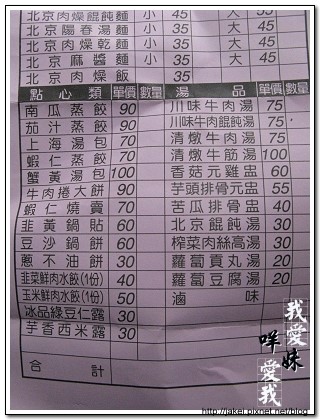 北京肉燥餛飩麵 小 45 大 55
北京陽春湯麵 小 35 大 45
北京肉燥乾麵 小 35 大 45
北京麻醬麵 小 35 大 45
北京肉燥飯 35
點心類 單價 數量 湯品 單價 數量
南瓜蒸餃 90 川味牛肉湯 75
茄汁蒸餃 90 川味牛肉餛飩湯 75
上海湯包 70 清燉牛肉湯 75
蝦仁蒸餃 70 清燉牛筋湯 100
蟹黃湯包 100 香菇元雞盅 60
牛肉捲大餅 90 芋頭排骨元盅 55
蝦仁燒賣 70 苦瓜排骨盅 40
韭黃鍋貼 60 北京餛飩湯 30
豆沙鍋餅 60 榨菜肉絲高湯 30
蔥不油餅 30 蘿蔔貢丸湯 20
韭菜鮮肉水餃(1份) 40 蘿蔔豆腐湯 20
玉米鮮肉水餃(1份) 50 滷味
冰品綠豆仁露 30
芋香西米露 30
合計
我愛妹
咩愛我
http://lakei.pixnet.net/blog